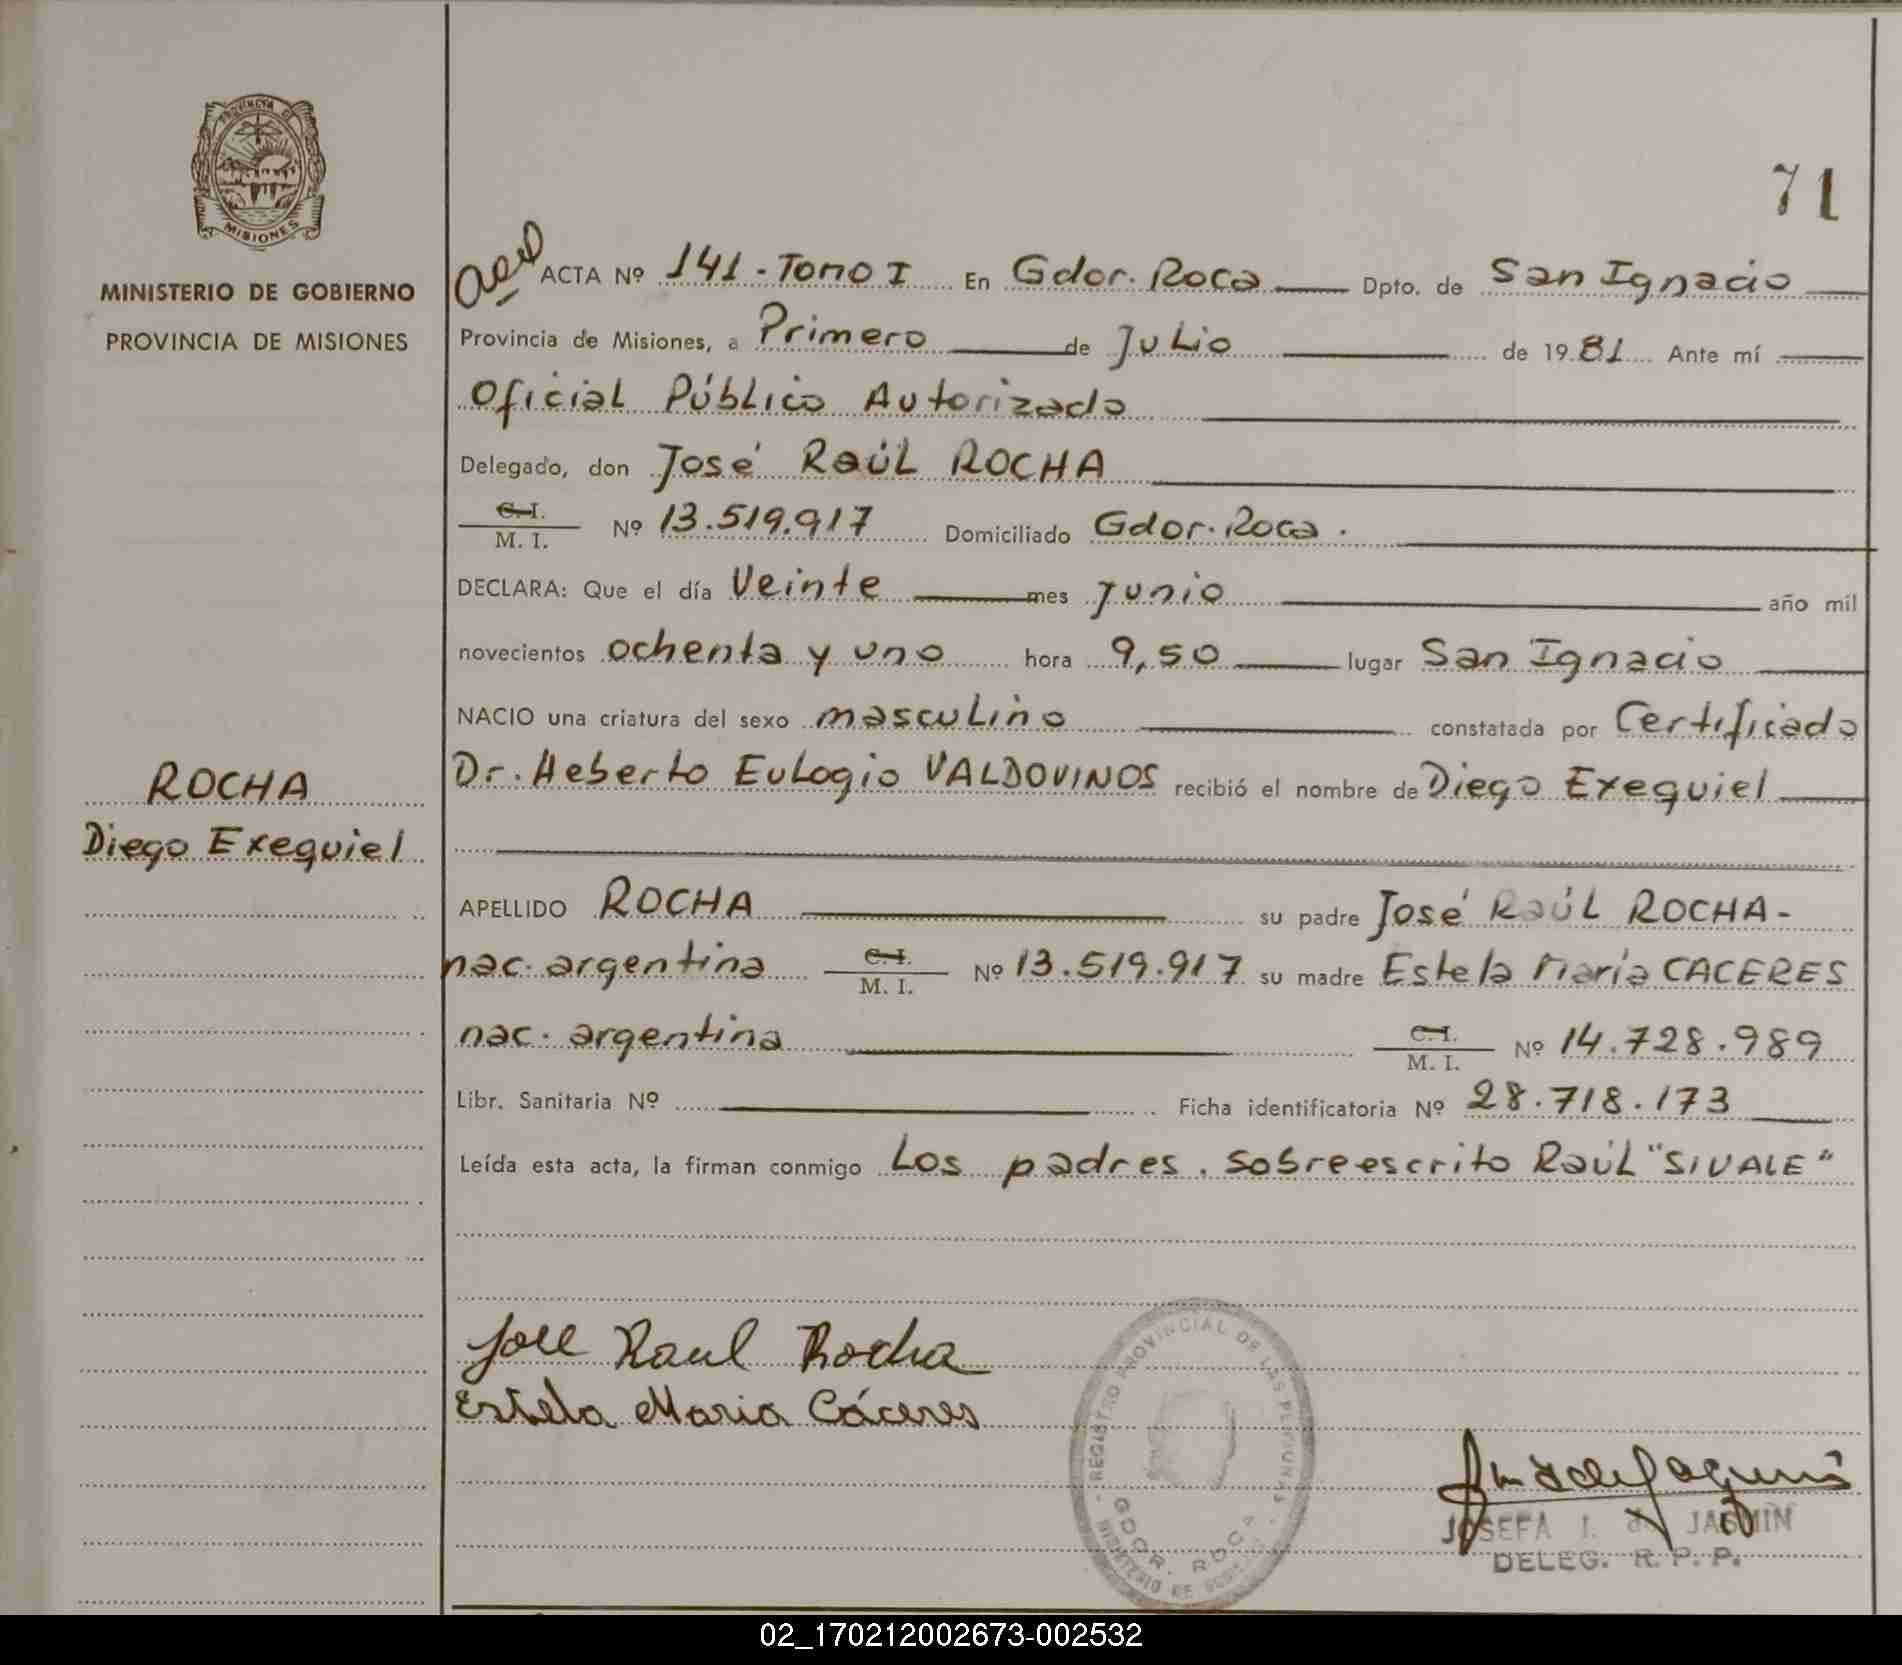 PROVINCIA DE
MISIONES
MINISTERIO DE GOBIERNO
PROVINCIA DE MISIONES
ROCHA
Diego Exequiel
71
ACTA Nº 141-Tomo I En Gdor. Roca Dpto. de San Ignacio
Provincia de Misiones, a Primero de Julio de 1981 Ante mí
Oficial Público Autorizado
Delegado, don José Raúl ROCHA
C. I.
M. I. Nº 13.519.917 Domiciliado Gdor. Roca.
DECLARA: Que el día Veinte mes junio año mil
novecientos ochenta y uno hora 9,50 lugar San Ignacio
NACIO una criatura del sexo masculino constatada por Certificado
Dr. Heberto Eulogio VALDOVINOS recibió el nombre de Diego Exequiel
APELLIDO ROCHA su padre José Raúl ROCHA-
nac. argentina C. I. M. I. Nº 13.519.917 su madre Estela María CACERES
nac. argentina C. I. M. I. Nº 14.728.989
Libr. Sanitaria Nº Ficha identificatoria Nº 28.718.173
Leída esta acta, la firman conmigo Los padres. Sobreescrito Raúl "SIVALE"
Jose Raul Rocha
Estela Maria Cáceres
REGISTRO PROVINCIAL DE LAS PERSONAS
GDOR. ROCA
MINISTERIO DE
JOSEFA I. de
DELEG. R. P. P.
02_170212002673-002532